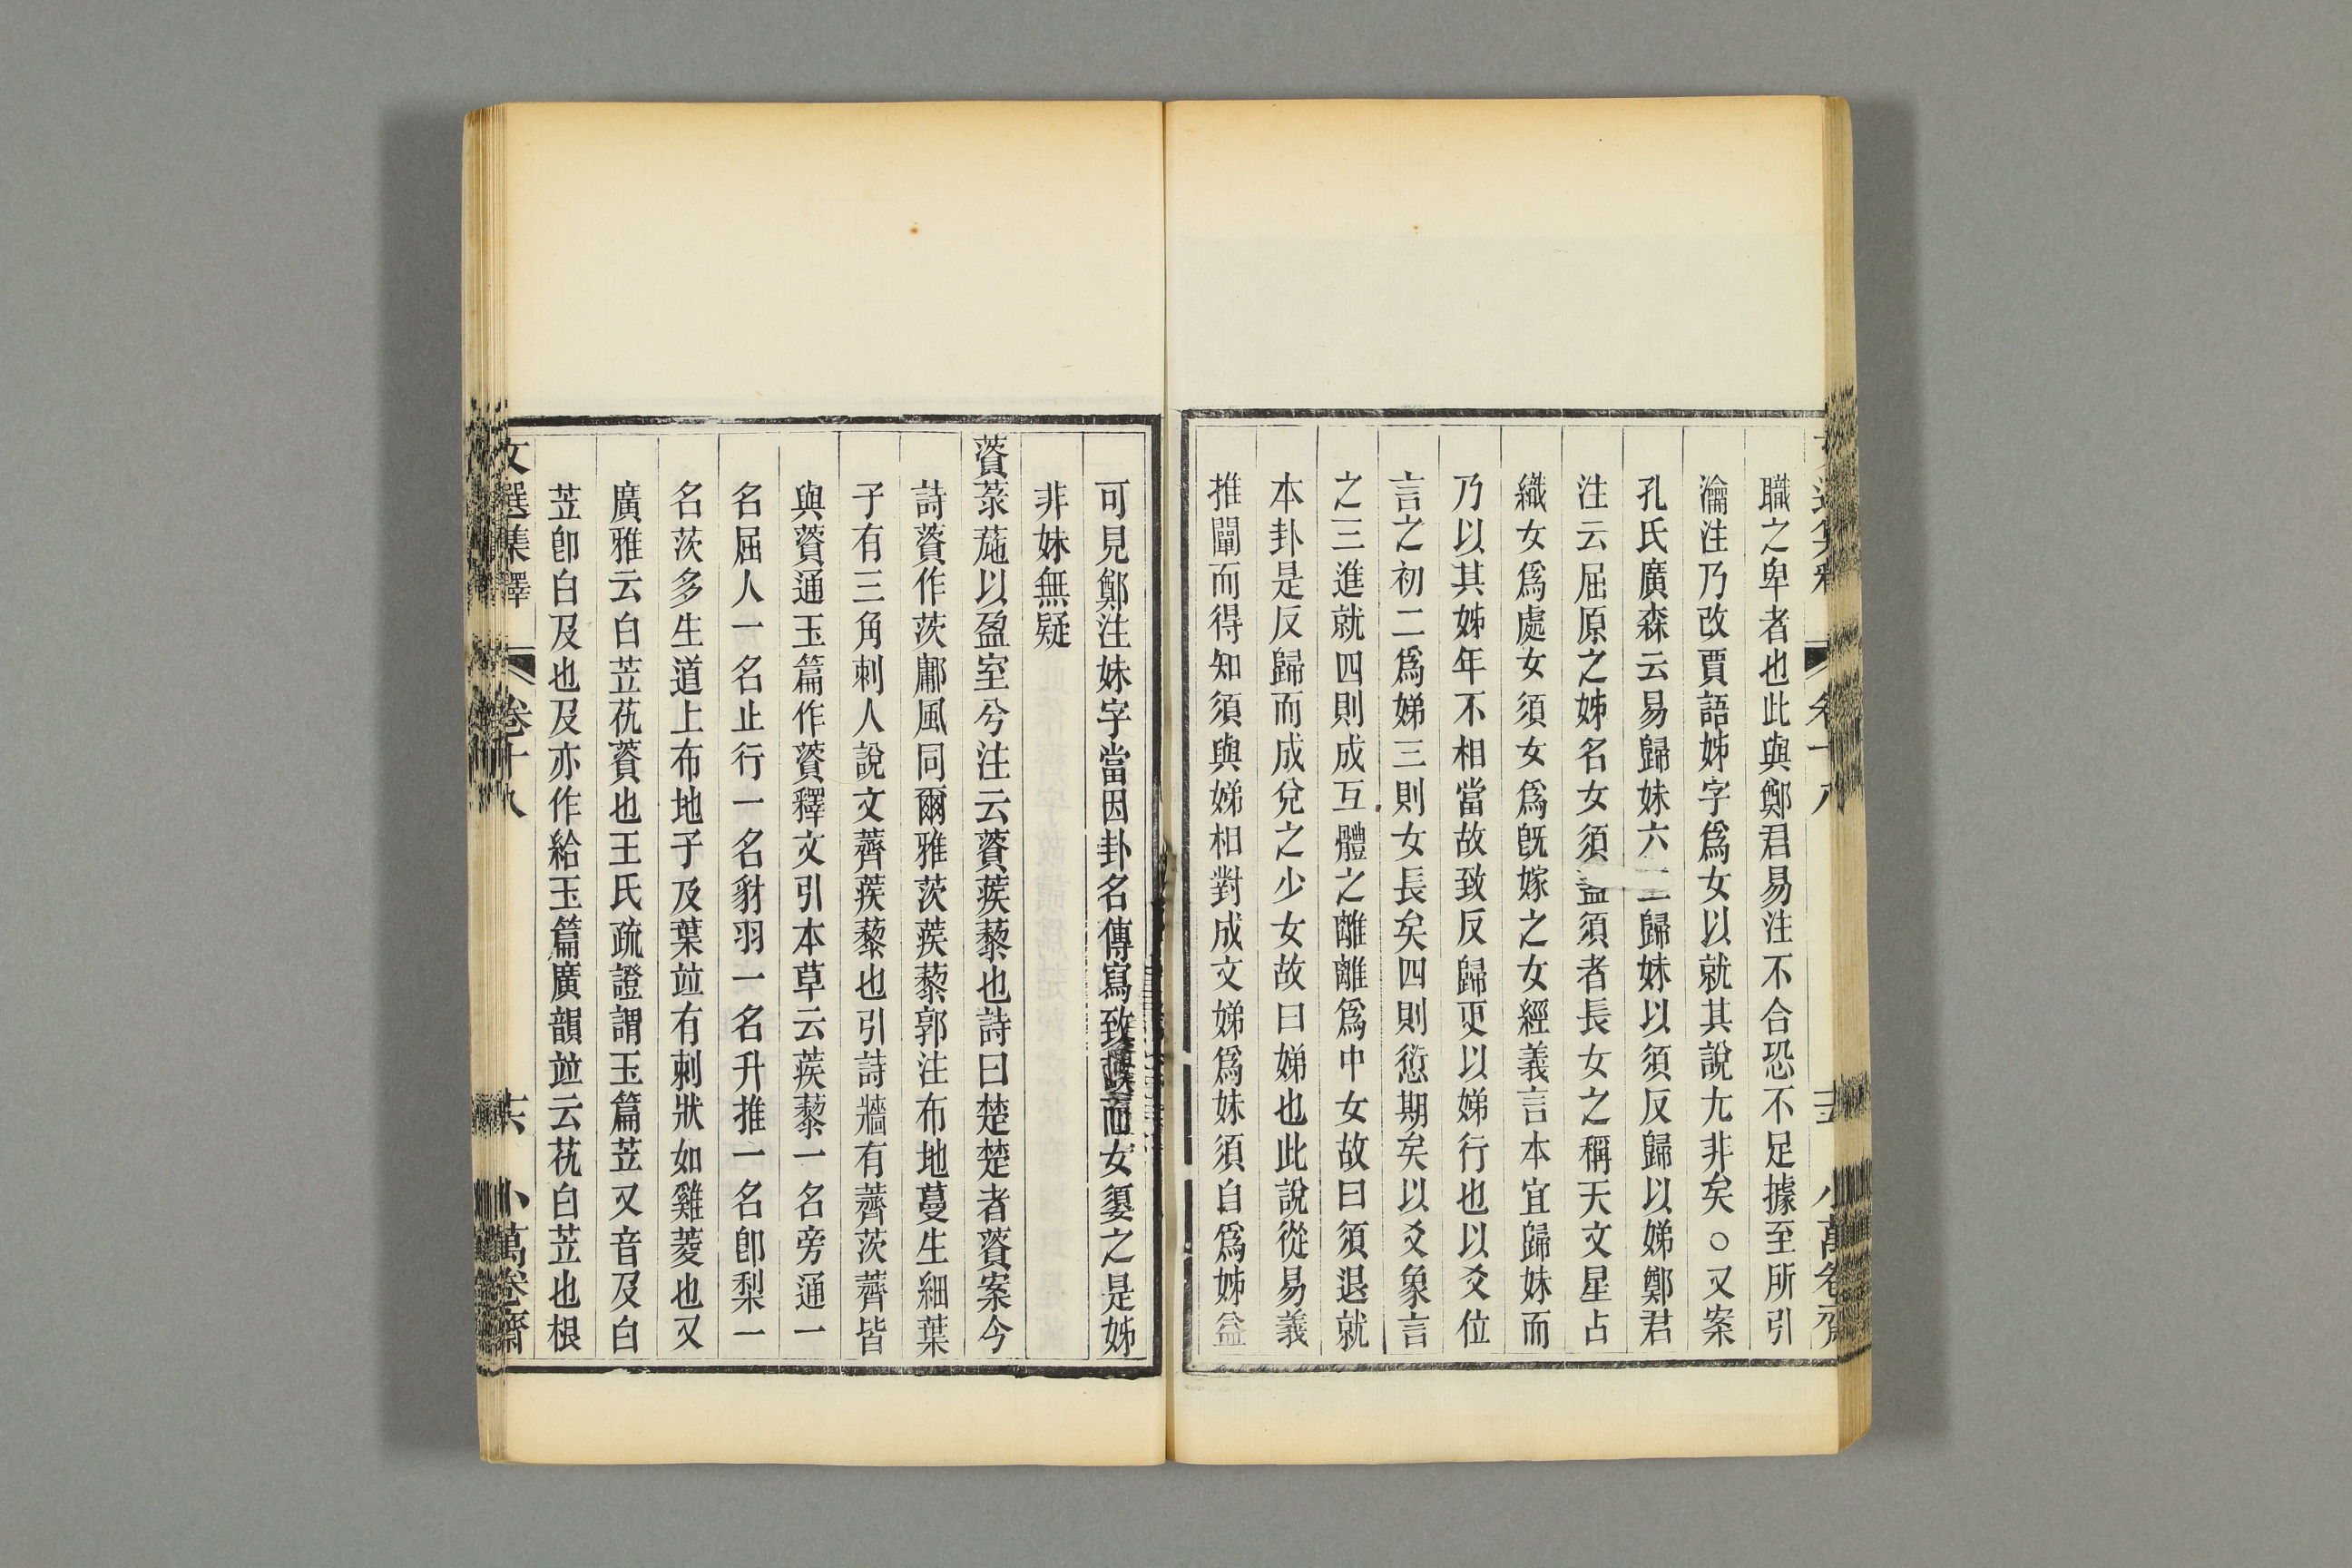 職之卑者也此與鄭君易注不合恐不足據至所引
瀹注乃改賈語姊字爲女以就其說尢非矣○又案
孔氏廣森云易歸妹六三歸妹以須反歸以娣鄭君
注云屈原之姊名女須葢須者長女之稱天文星占
織女爲處女須女爲旣嫁之女經義言本宜歸妹而
乃以其姊年不相當故致反歸更以娣行也以爻位
言之初二爲娣三則女長矣四則愆期矣以爻象言
之三進就四則成互體之離離爲中女故曰須退就
本卦是反歸而成兌之少女故曰娣也此說從易義
推闡而得知須與娣相對成文娣爲妹須自爲姊益
可見鄭注妹字當因卦名傳寫致而女嬃之是姊
非妹無疑
薋菉葹以盈室兮注云薋蒺藜也詩曰楚楚者薋案今
詩薋作茨鄘風同爾雅茨蒺藜郭注布地蔓生細葉
子有三角刺人說文薺蒺藜也引詩牆有薺茨薺皆
與薋通玉篇作薋釋文引本草云蒺藜一名旁通一
名屈人一名止行一名豺羽一名升推一名卽梨一
名茨多生道上布地子及葉竝有刺狀如雞菱也又
廣雅云白苙艽薋也王氏疏證謂玉篇苙又音及白
苙卽白及也及亦作給玉篇廣韻竝云艽白苙也根
文選集釋 卷十八 共 小萬卷齋